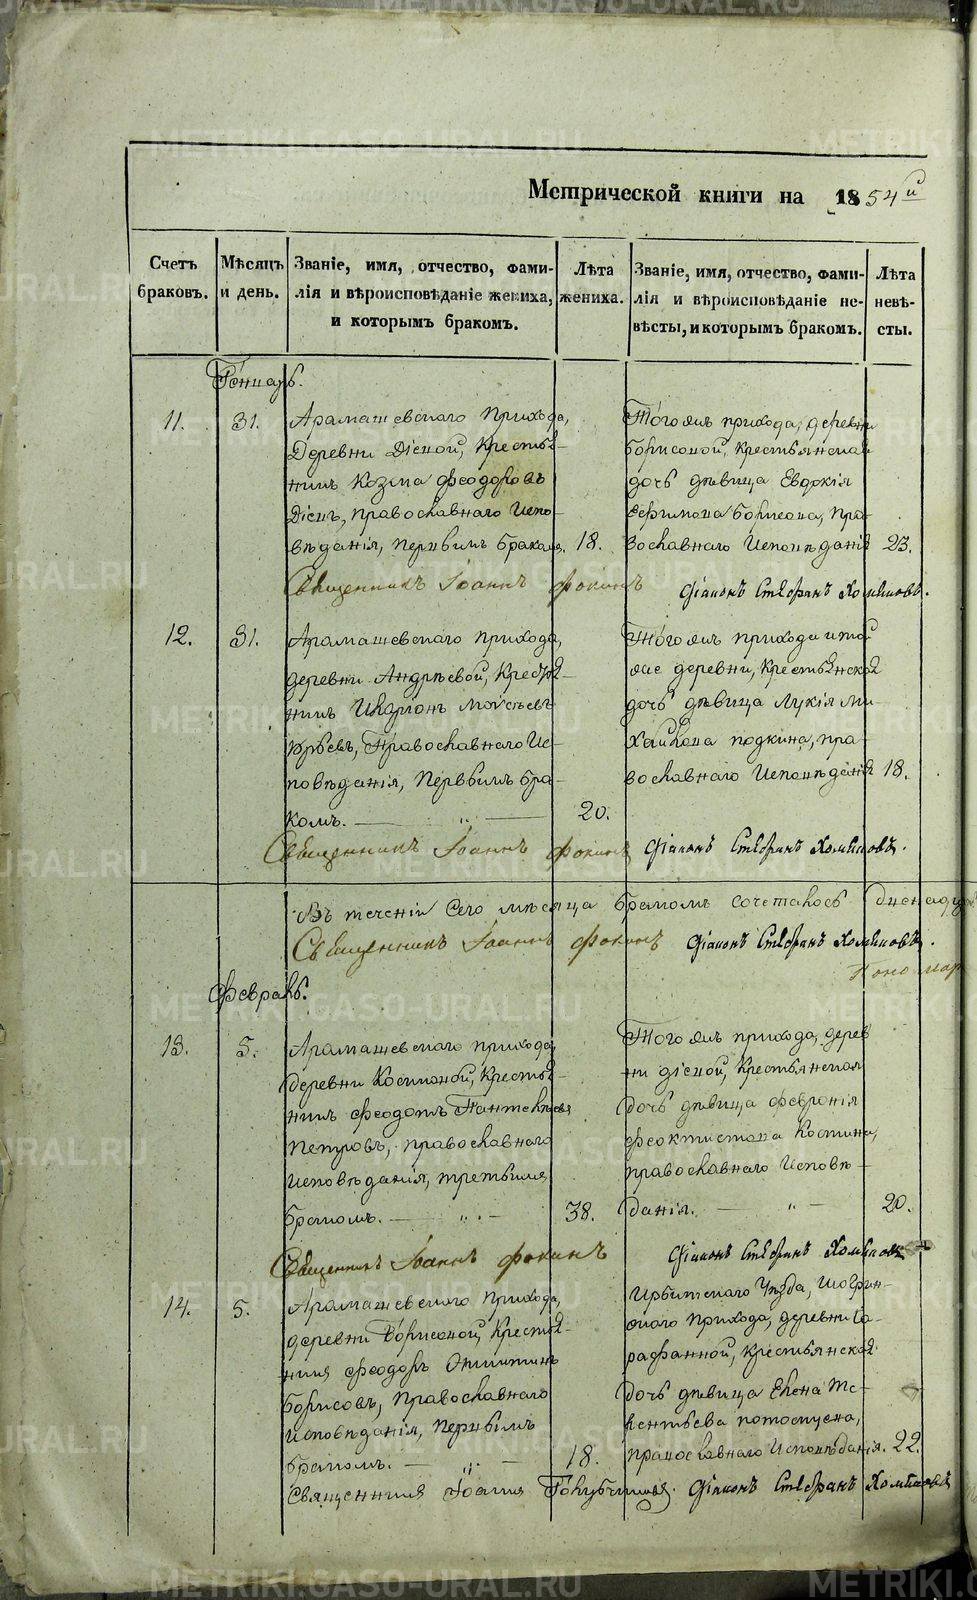 METRIKI.GASO-URAL.RU
Метрической книги на 1854й
Счетъ браковъ.
Мѣсяцъ и день.
Званіе, имя, отчество, фами-
лія и вѣроисповѣданіе жениха,
и которымъ бракомъ.
Лѣта жениха.
Званіе, имя, отчество, фами-
лія и вѣроисповѣданіе не-
вѣсты, и которымъ бракомъ.
Лѣта невѣ-
сты.
Генварь.
11. 31.
Арамашевскаго прихода,
Деревни Діевой, Крестья-
нинъ Козма Феодоровъ
Діевъ, православнаго Испо-
вѣданія, первымъ бракомъ. 18.
Того же прихода, деревни
Борисовой, Крестьянская
дочь дѣвица Евдокія
Ефимова Борисова, Пра-
вославнаго Исповѣданія 23.
Священникъ Іоаннъ Фокинъ
Діаконъ Стефанъ Хомяковъ.
12. 31.
Арамашевскаго прихода,
деревни Андрѣевой, Крестья-
нинъ Иларіонъ Моисѣевъ
Юрьевъ, Православнаго Ис-
повѣданія, Первымъ бра-
комъ. 20.
Того же прихода и той
же деревни, Крестьянская
дочь дѣвица Лукія Ми-
хайлова Подкина, пра-
вославнаго Исповѣданія 18.
Священникъ Іоаннъ Фокинъ
Діаконъ Стефанъ Хомяковъ.
Въ теченіи сего мѣсяца бракомъ сочеталось двенадц
Священникъ Іоаннъ Фокинъ Діаконъ Стефанъ Хомяковъ.
Пономар
Февраль.
13. 5.
Арамашевскаго прихода,
деревни Косиковой, Крестья-
нинъ Феодотъ Пантелѣевъ
Петровъ, православнаго
Исповѣданія, третьимъ
бракомъ. 38.
Того же прихода, дерев
ни Діевой, Крестьянская
дочь дѣвица Февронія
Феоктистова Костина,
православнаго Исповѣ-
данія. 20.
Священникъ Іоаннъ Фокинъ
Діаконъ Стефанъ Хомяковъ
14. 5.
Арамашевскаго прихода,
деревни Борисовой, Крестья-
нинъ Феодоръ
Борисовъ, Православнаго
исповѣданія, Первымъ
бракомъ. 18.
Ирбитскаго Уѣзда, Шогрин-
скаго прихода, деревни Са-
рафанной, Крестьянская
дочь дѣвица Елена Те-
рентьева Потоскуева,
православнаго Исповѣданія. 22.
Священникъ Іоаннъ Голубчиковъ. Діаконъ Стефанъ Хомяковъ